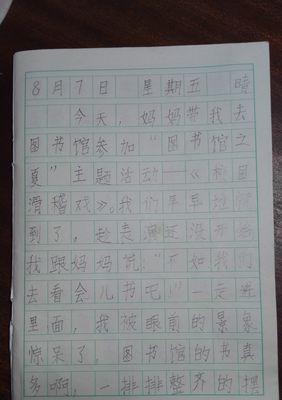 8月7日 星期五 晴
今天,妈妈带我去
图书馆参加“图书馆之
夏”主题活动——《校园
滑稽戏》。我们早早地
到了,趁表演还没开始
我跟妈妈说:“不如我们
去看会儿书吧!”一走进
里面,我被眼前的景象
惊呆了,图书馆的书真
多啊,一排排整齐的摆